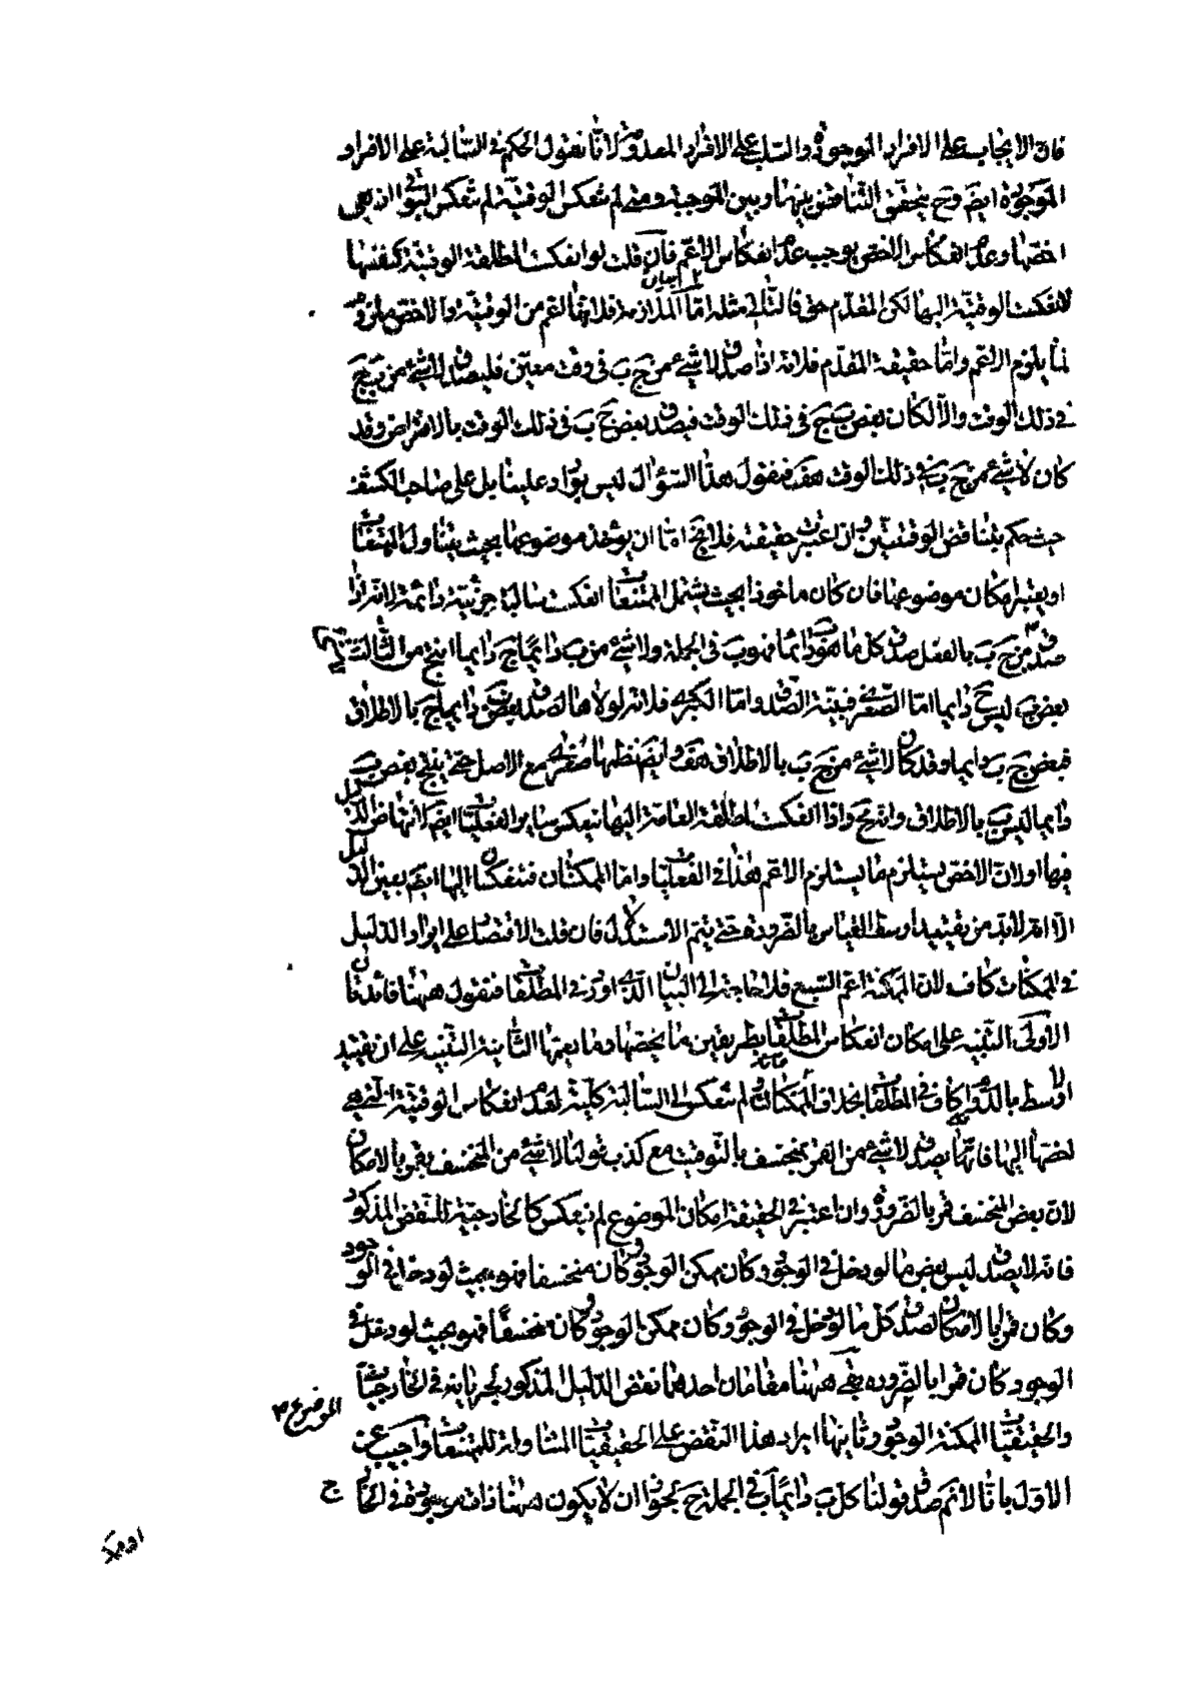 فان الايجاب على الافراد الموجودة والسلب على الافراد المعدومة لانا نقول الحكم فى السالبة على الافراد
الموجودة ايضا وح يتحقق التناقض بينها وبين الموجبة ومتى لم تنعكس الوقتية لم تنعكس البواقى اذ هى
اخصها وعدم انعكاس الاخص يوجب عدم انعكاس الاعم فان قلت لو انعكست المطلقة الوقتية كنفسها
لانعكست الوقتية اليها لكن المقدم حق فالتالى مثله اما الملازمة فلانها اعم من الوقتية والاخص ملزوم
لما يلزم الاعم واما حقيقة المقدم فلانه اذا صدق لا شىء من ج ب فى وقت معين فليصدق لا شىء من ب ج
فى ذلك الوقت والا لكان بعض ب ج فى ذلك الوقت فيصدق بعض ج ب فى ذلك الوقت بالافتراض وقد
كان لا شىء من ج ب فى ذلك الوقت هف فنقول هذا السؤال ليس بوارد علينا بل على صاحب الكشف
حيث حكم بتناقض الوقتيتين وان اعتبرت حقيقته فلا يخ اما ان يؤخذ موضوعها بحيث يتناول الممتنعات
او يعتبر امكان موضوعها فان كان ماخوذا بحيث يشمل الممتنعات انعكست سالبة جزئية دائمة لانه اذا
صدق من ج ب بالفعل صدق كل ما هو ب دائما فهو ب فى الجملة ولا شىء من ب دائما ج دايما انتج من الثالث
بعض ب ليس ج دايما اما الصغرى فبينة الصدق واما الكبرى فلانه لولاها لصدق بعض ب دايما ج بالاطلاق
فبعض ج ب دايما وقد كان لا شىء من ج ب بالاطلاق هف وايضا نظمها صغرى مع الاصل حتى ينتج بعض ب
دايما ليس ب بالاطلاق وانه مح واذا انعكست المطلقة العامة اليها تنعكس ساير الفعليات ايضا لانتهاض الدليل
فيها او لان الاخص يستلزم ما يستلزم الاعم هذا فى الفعليات واما الممكنتان فتنعكسان اليها ايضا بعين الدليل
الا انه لابد من تقييد اوسط القياس بالضرورة حتى يتم الاستدلال فان قلت الاقتصار على ايراد الدليل
فى الممكنات كاف لان الممكنة اعم السبع فلا حاجة الى البيان الذى اورد فى المطلقات فنقول ههنا فائدتان
الاولى التنبيه على امكان انعكاس المطلقات بطريقين ما يخصها وما يعمها الثانية التنبيه على ان تقييد
الاوسط بالدوام كاف فى المطلقات بخلاف الممكنات لم تنعكس الى السالبة كلية لعدم انعكاس الوقتية التى هى
اخصها اليها فانها يصدق لا شىء من القمر بمنخسف بالتوقيت مع كذب قولنا لا شىء من المنخسف بقمر بالامكان
لان بعض المنخسف قمر بالضرورة وان اعتبر فى الحقيقة امكان الموضوع لم تنعكس كالخارجية للنقض المذكور
فانه لا يصدق ليس بعض ما لو دخل فى الوجود وكان ممكن الوجود كان منخسفا فهو بحيث لو دخل فى الوجود
وكان قمرا بالامكان لصدق كل ما لو دخل فى الوجود وكان ممكن الوجود وكان منخسفا فهو بحيث لو دخل فى
الوجود كان قمرا بالضرورة بقى ههنا مقامان احدهما نقض الدليل المذكور لجريانه فى الخارجيات
والحقيقيات الممكنة الوجود وثانيها ايراد هذا النقض على الحقيقيات المتناولة للممتنعات واجيب عن
الموضوع
الاول بانا لا نم صدق قولنا كل ب دائما ب فى الجملة ح لجواز ان لا يكون ههنا ذات موصوفة فى الخارج